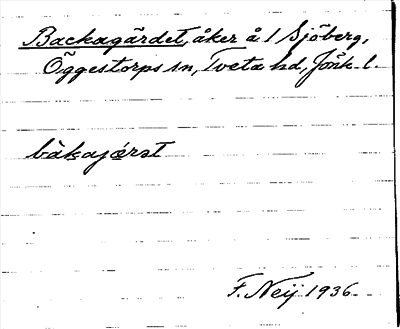 Backagärdet, åker å 1 Sjöberg,
Öggestorps sn, Tveta hd, Jönk. l.
bàkajǽrst
F. Neij 1936